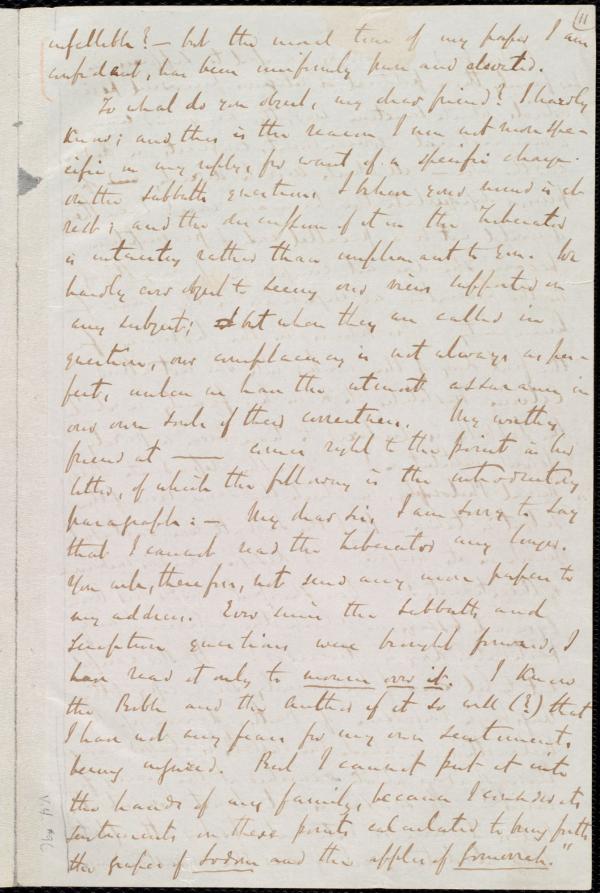 11
infallible? — but the moral tone of my paper I am
confident, has been uniformly pure and elevated.
To what do you object, my dear friend? I hardly
know; and this is the reason I am not more spe-
cific in my reply, for want of a specific charge.
On the Sabbath question I believe your mind is at
rest; and the discussion of it in the Liberator
is interesting rather than unpleasant to you. We
hardly ever object to seeing our views supported on
any subject; but when they are called in
question, our complacency is not always as per-
fect, unless we have the utmost assurance in
our own souls of their correctness. My worthy
friend at —— comes right to the point in his
letter, of which the following is the introductory
paragraph: — My dear Sir, I am sorry to say
that I cannot read the Liberator any longer.
You will, therefore, not send any more papers to
my address. Ever since the Sabbath and
Scripture questions were brought forward, I
have read it only to mourn over it. I know
the Bible and the author of it so well (?) that
I have not any fears for my own sentiments
being injured. But I cannot put it into
the hands of my family, because I consider its
sentiments on these points calculated to bring forth
the grapes of Sodom and the apples of Gomorrah."